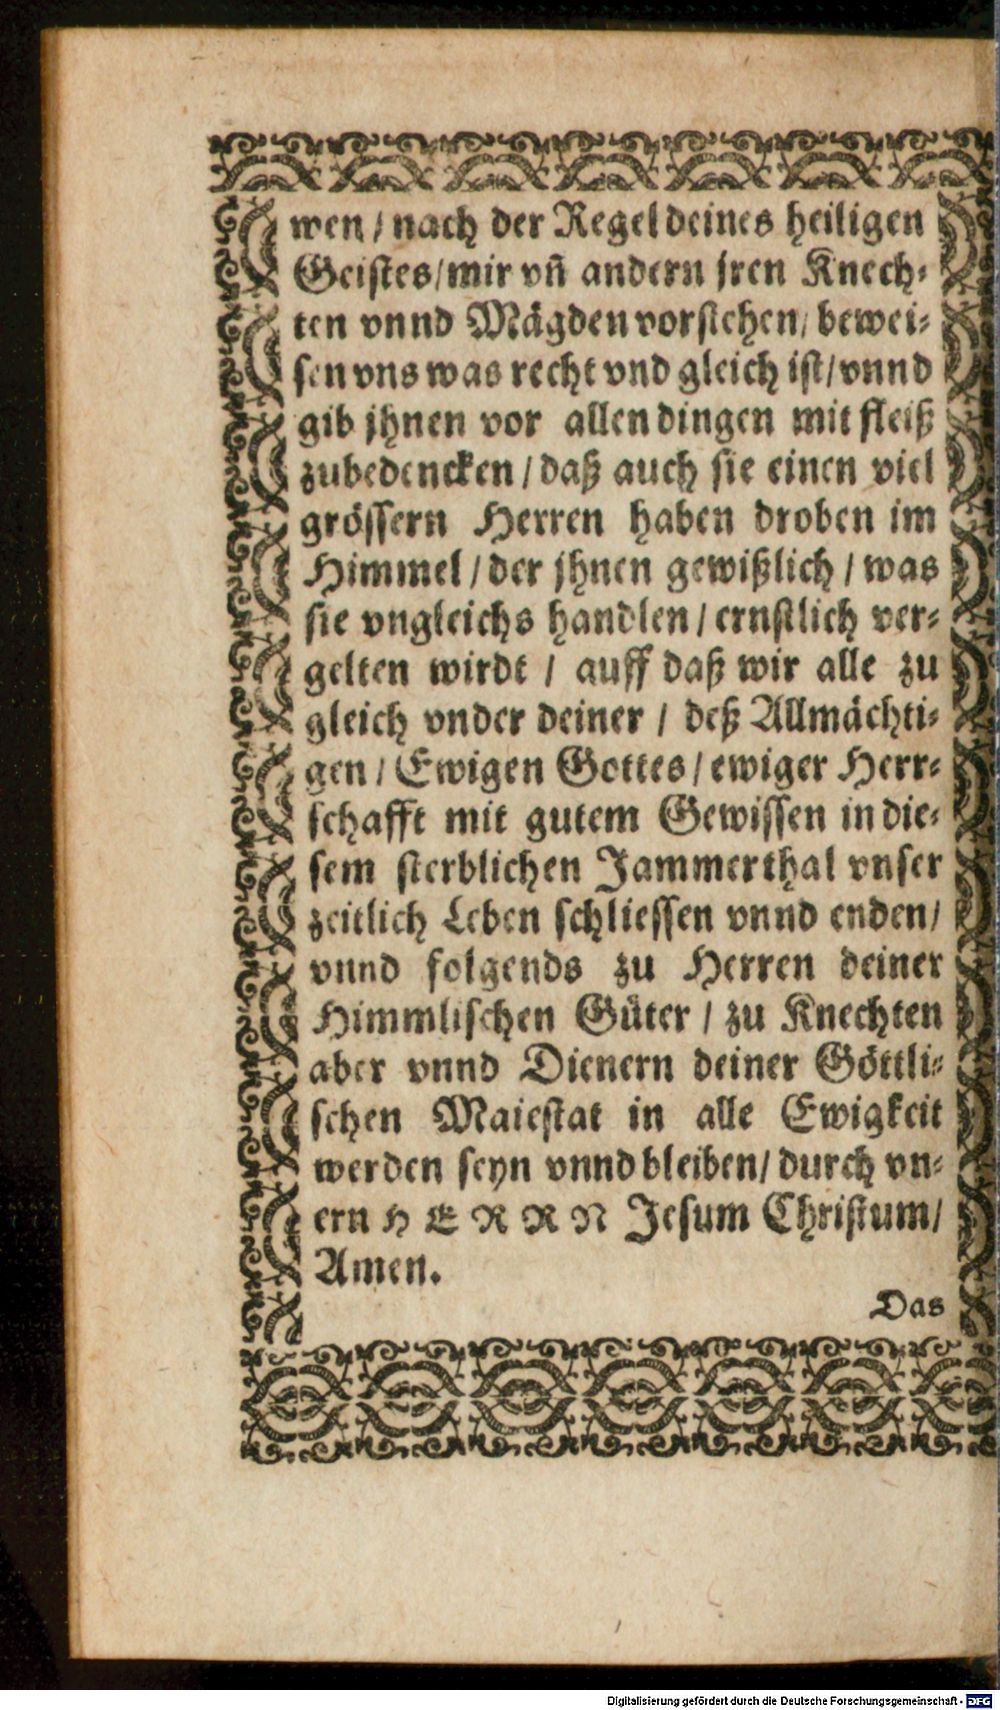 wen / nach der Regel deines heiligen
Geistes / mir vñ andern jren Knech⸗
ten vnnd Mägden vorstehen / bewei⸗
sen vns was recht vnd gleich ist / vnnd
gib jhnen vor allen dingen mit fleiß
zubedencken / daß auch sie einen viel
grössern Herren haben droben im
Himmel / der jhnen gewißlich / was
sie vngleichs handlen / ernstlich ver⸗
gelten wirdt / auff daß wir alle zu
gleich vnder deiner / deß Allmächti⸗
gen / Ewigen Gottes / ewiger Herr⸗
schafft mit gutem Gewissen in die⸗
sem sterblichen Jammerthal vnser
zeitlich Leben schliessen vnnd enden /
vnnd folgends zu Herren deiner
Himmlischen Güter / zu Knechten
aber vnnd Dienern deiner Göttli⸗
schen Maiestat in alle Ewigkeit
werden seyn vnnd bleiben / durch vn⸗
ern HERRN Jesum Christum /
Amen.
Das
Digitalisierung gefördert durch die Deutsche Forschungsgemeinschaft - DFG